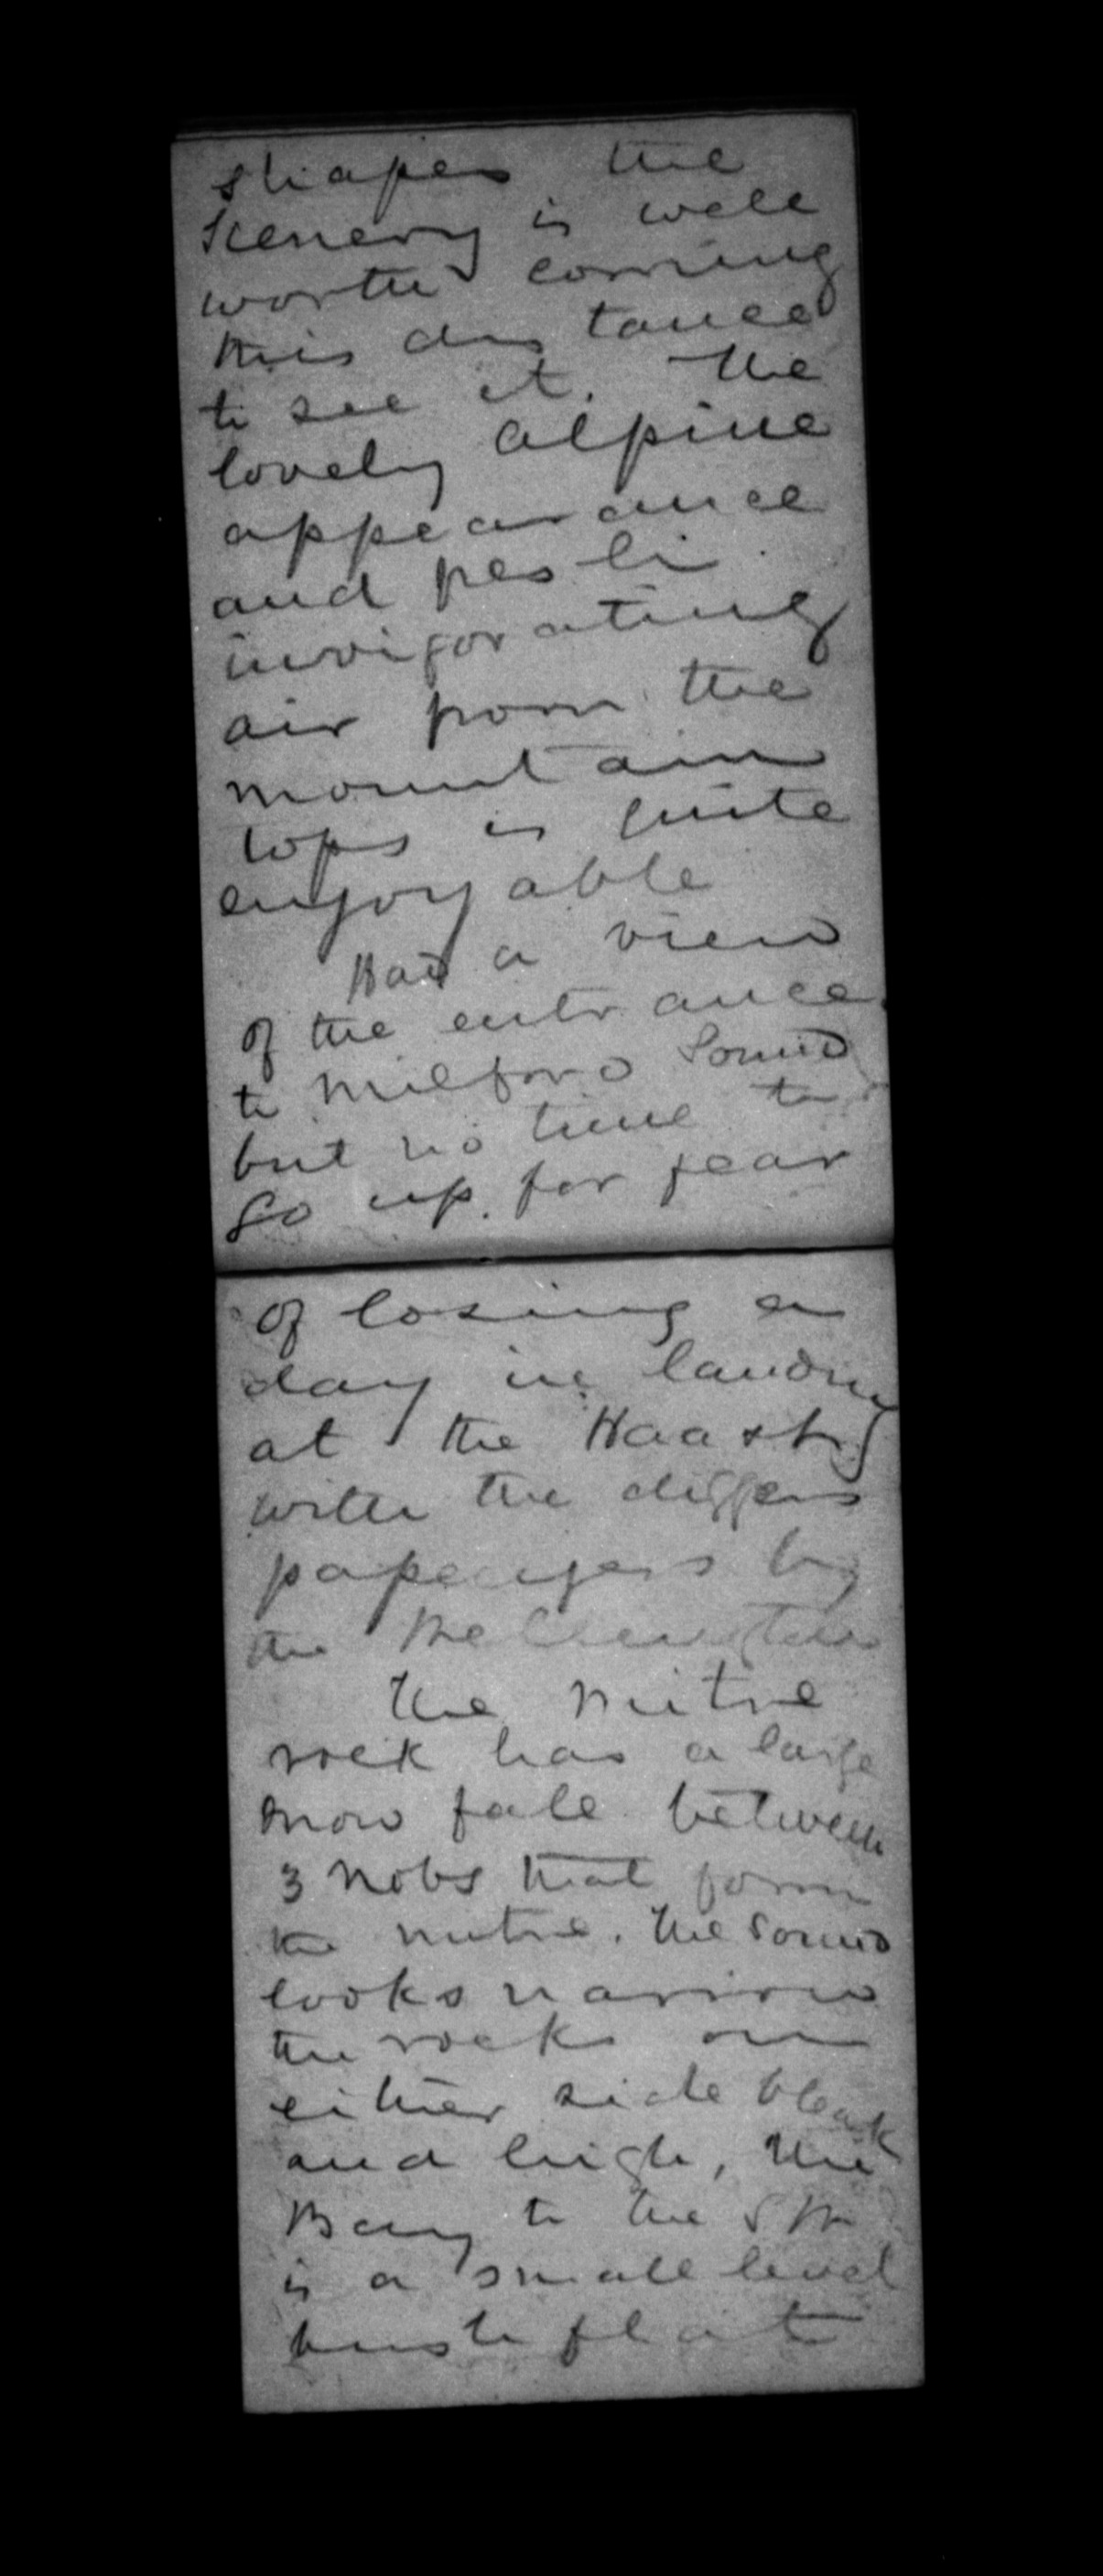 shapes the
scenery is well
worth coming
this distance
to see it. The
lovely alpine
appearance
and fresh
invigorating
air from the
mountain
tops is quite
enjoyable
Had a view
of the entrance
to Milford Sound
but no time to
go up. for fear
of losing a
day in landing
at the Haast
with the diggers
passengers by
the
The Mitre
rock has a large
snow fall between
3 nobs that form
the mitre. The Sound
looks narrow
the rocks on
either side bleak
and high, The
Bay to the
is a small level
bush flat